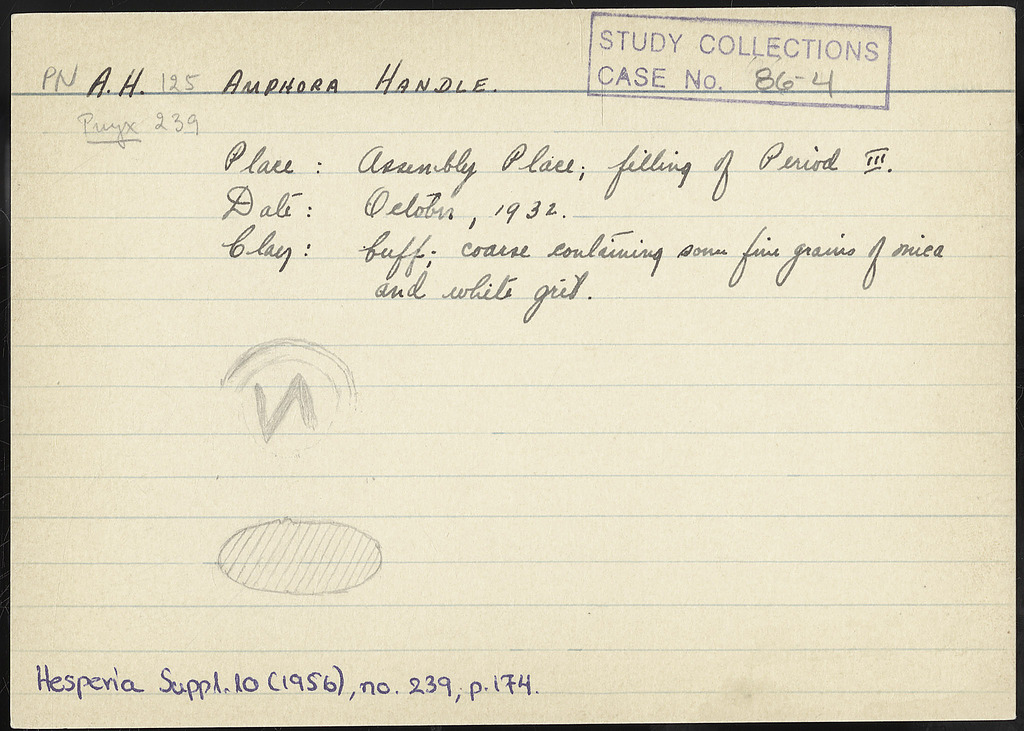 STUDY COLLECTIONS
CASE No. 86-4
PN A.H. 125 AMPHORA HANDLE.
Pnyx 239
Place : Assembly Place; filling of Period III.
Date : October, 1932.
Clay : buff; coarse containing some fine grains of mica
and white grit.
И
Hesperia Suppl. 10 (1956), no. 239, p. 174.